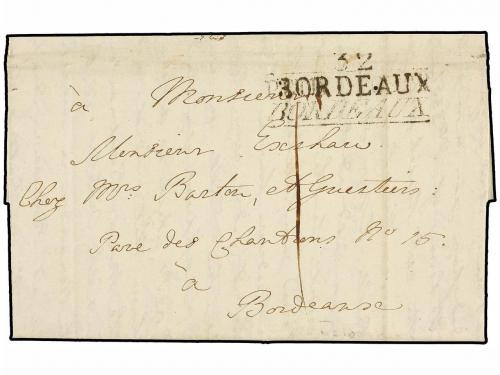 32
BORDEAUX
BORDEAUX
à Monsieur
Monsieur Exshaw
Chez Mrs Barton, et Guestier
Pave des Chartrons No 15.
à
Bordeaux